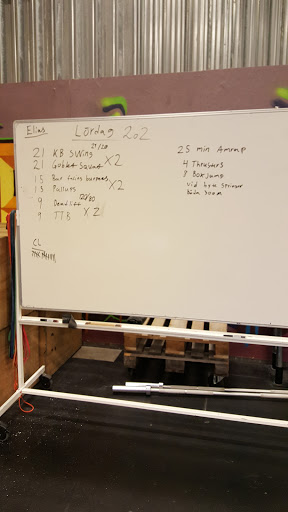 Elias
Lördag 202
24/20
21 KB Swing
21 Goblet Squat X2
15 Bar facing burpees
15 Pullups X2
120/80
9 Deadlift
9 TTB X2
CL
25 min Amrap
4 Thrusters
8 Box jump
vid byte springer
båda 200m